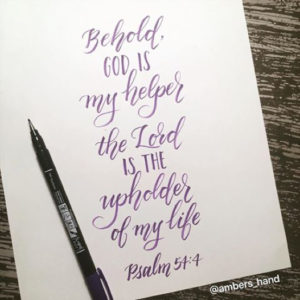 Behold,
GOD IS
my helper
the Lord
IS THE
upholder
of my life
Psalm 54:4
@ambers_hand